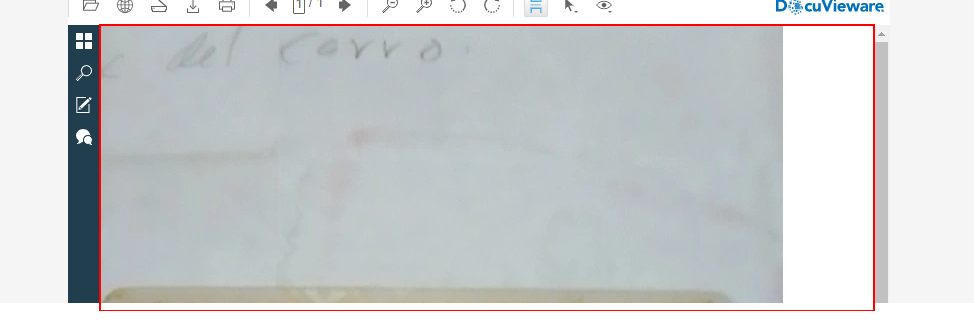 1 / 1
DocuVieware
del corro.